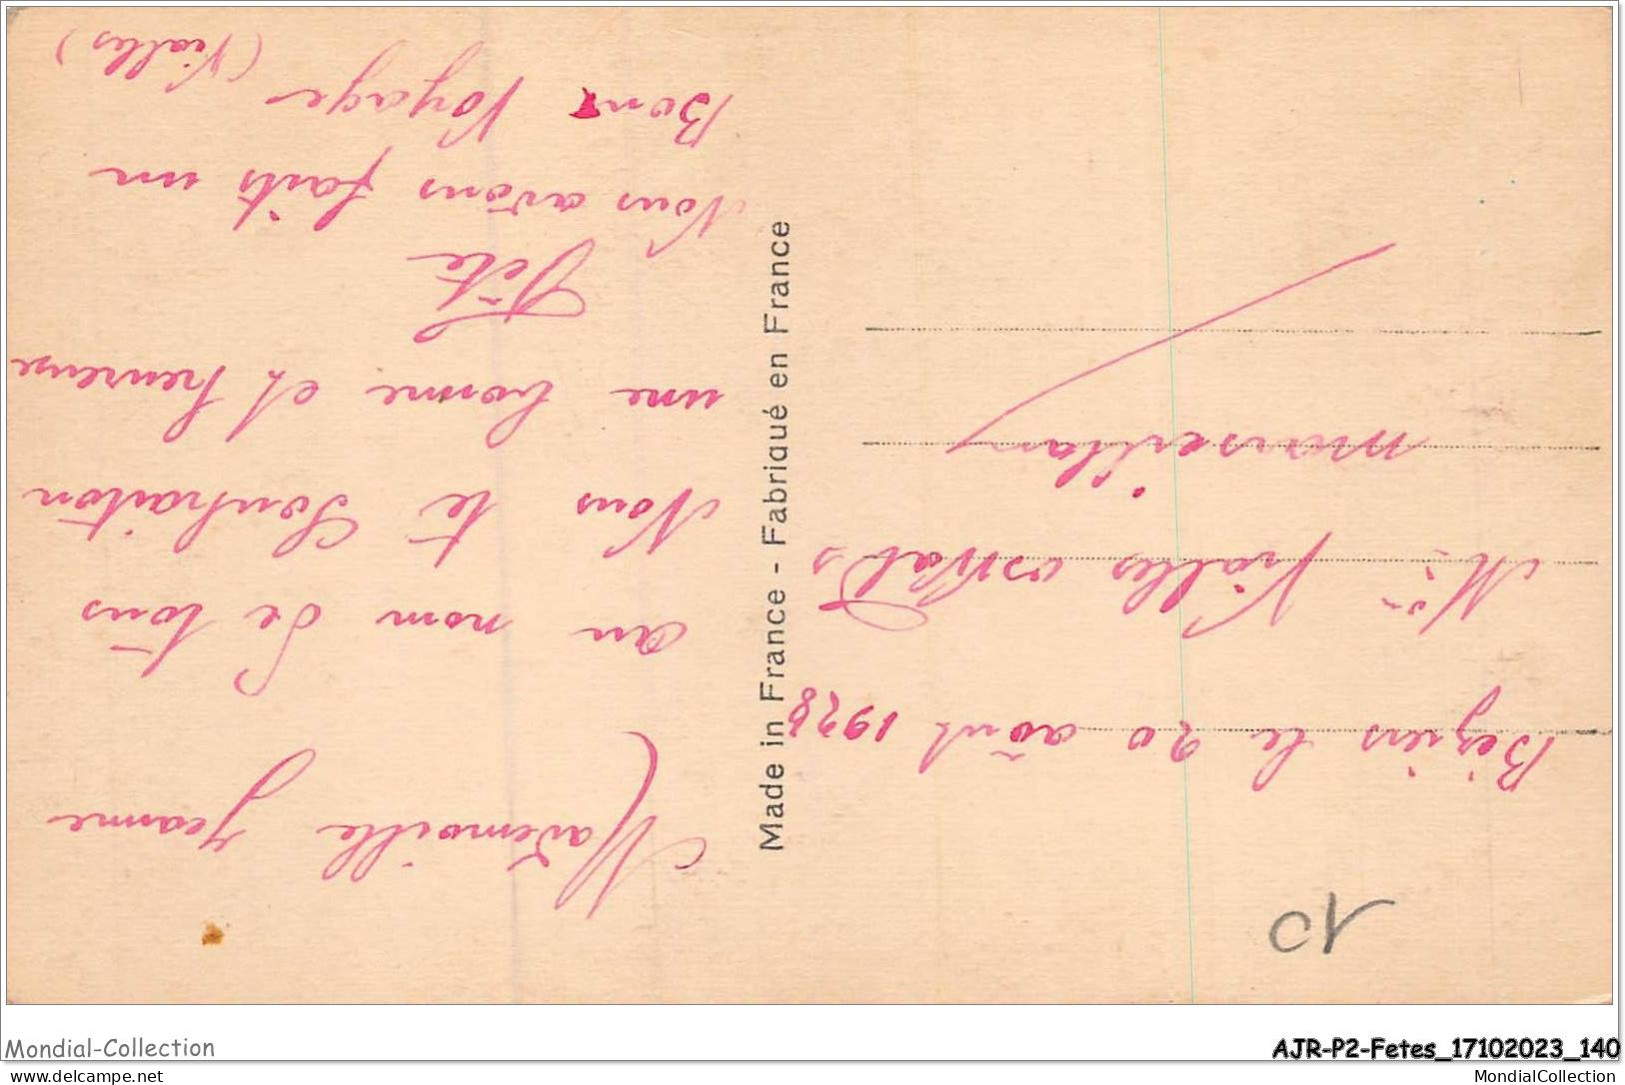 Béziers le 20 août 1928
Mr Vialles
marseillan
Mademoille Jeanne
au nom de tous
Nous te Souhaiton
une bonne et heureuse
Fête
Nous avons faits un
Bon Voyage (Vialles)
Made in France - Fabriqué en France
10
Mondial-Collection
AJR-P2-Fetes_17102023_140
www.delcampe.net
MondialCollection